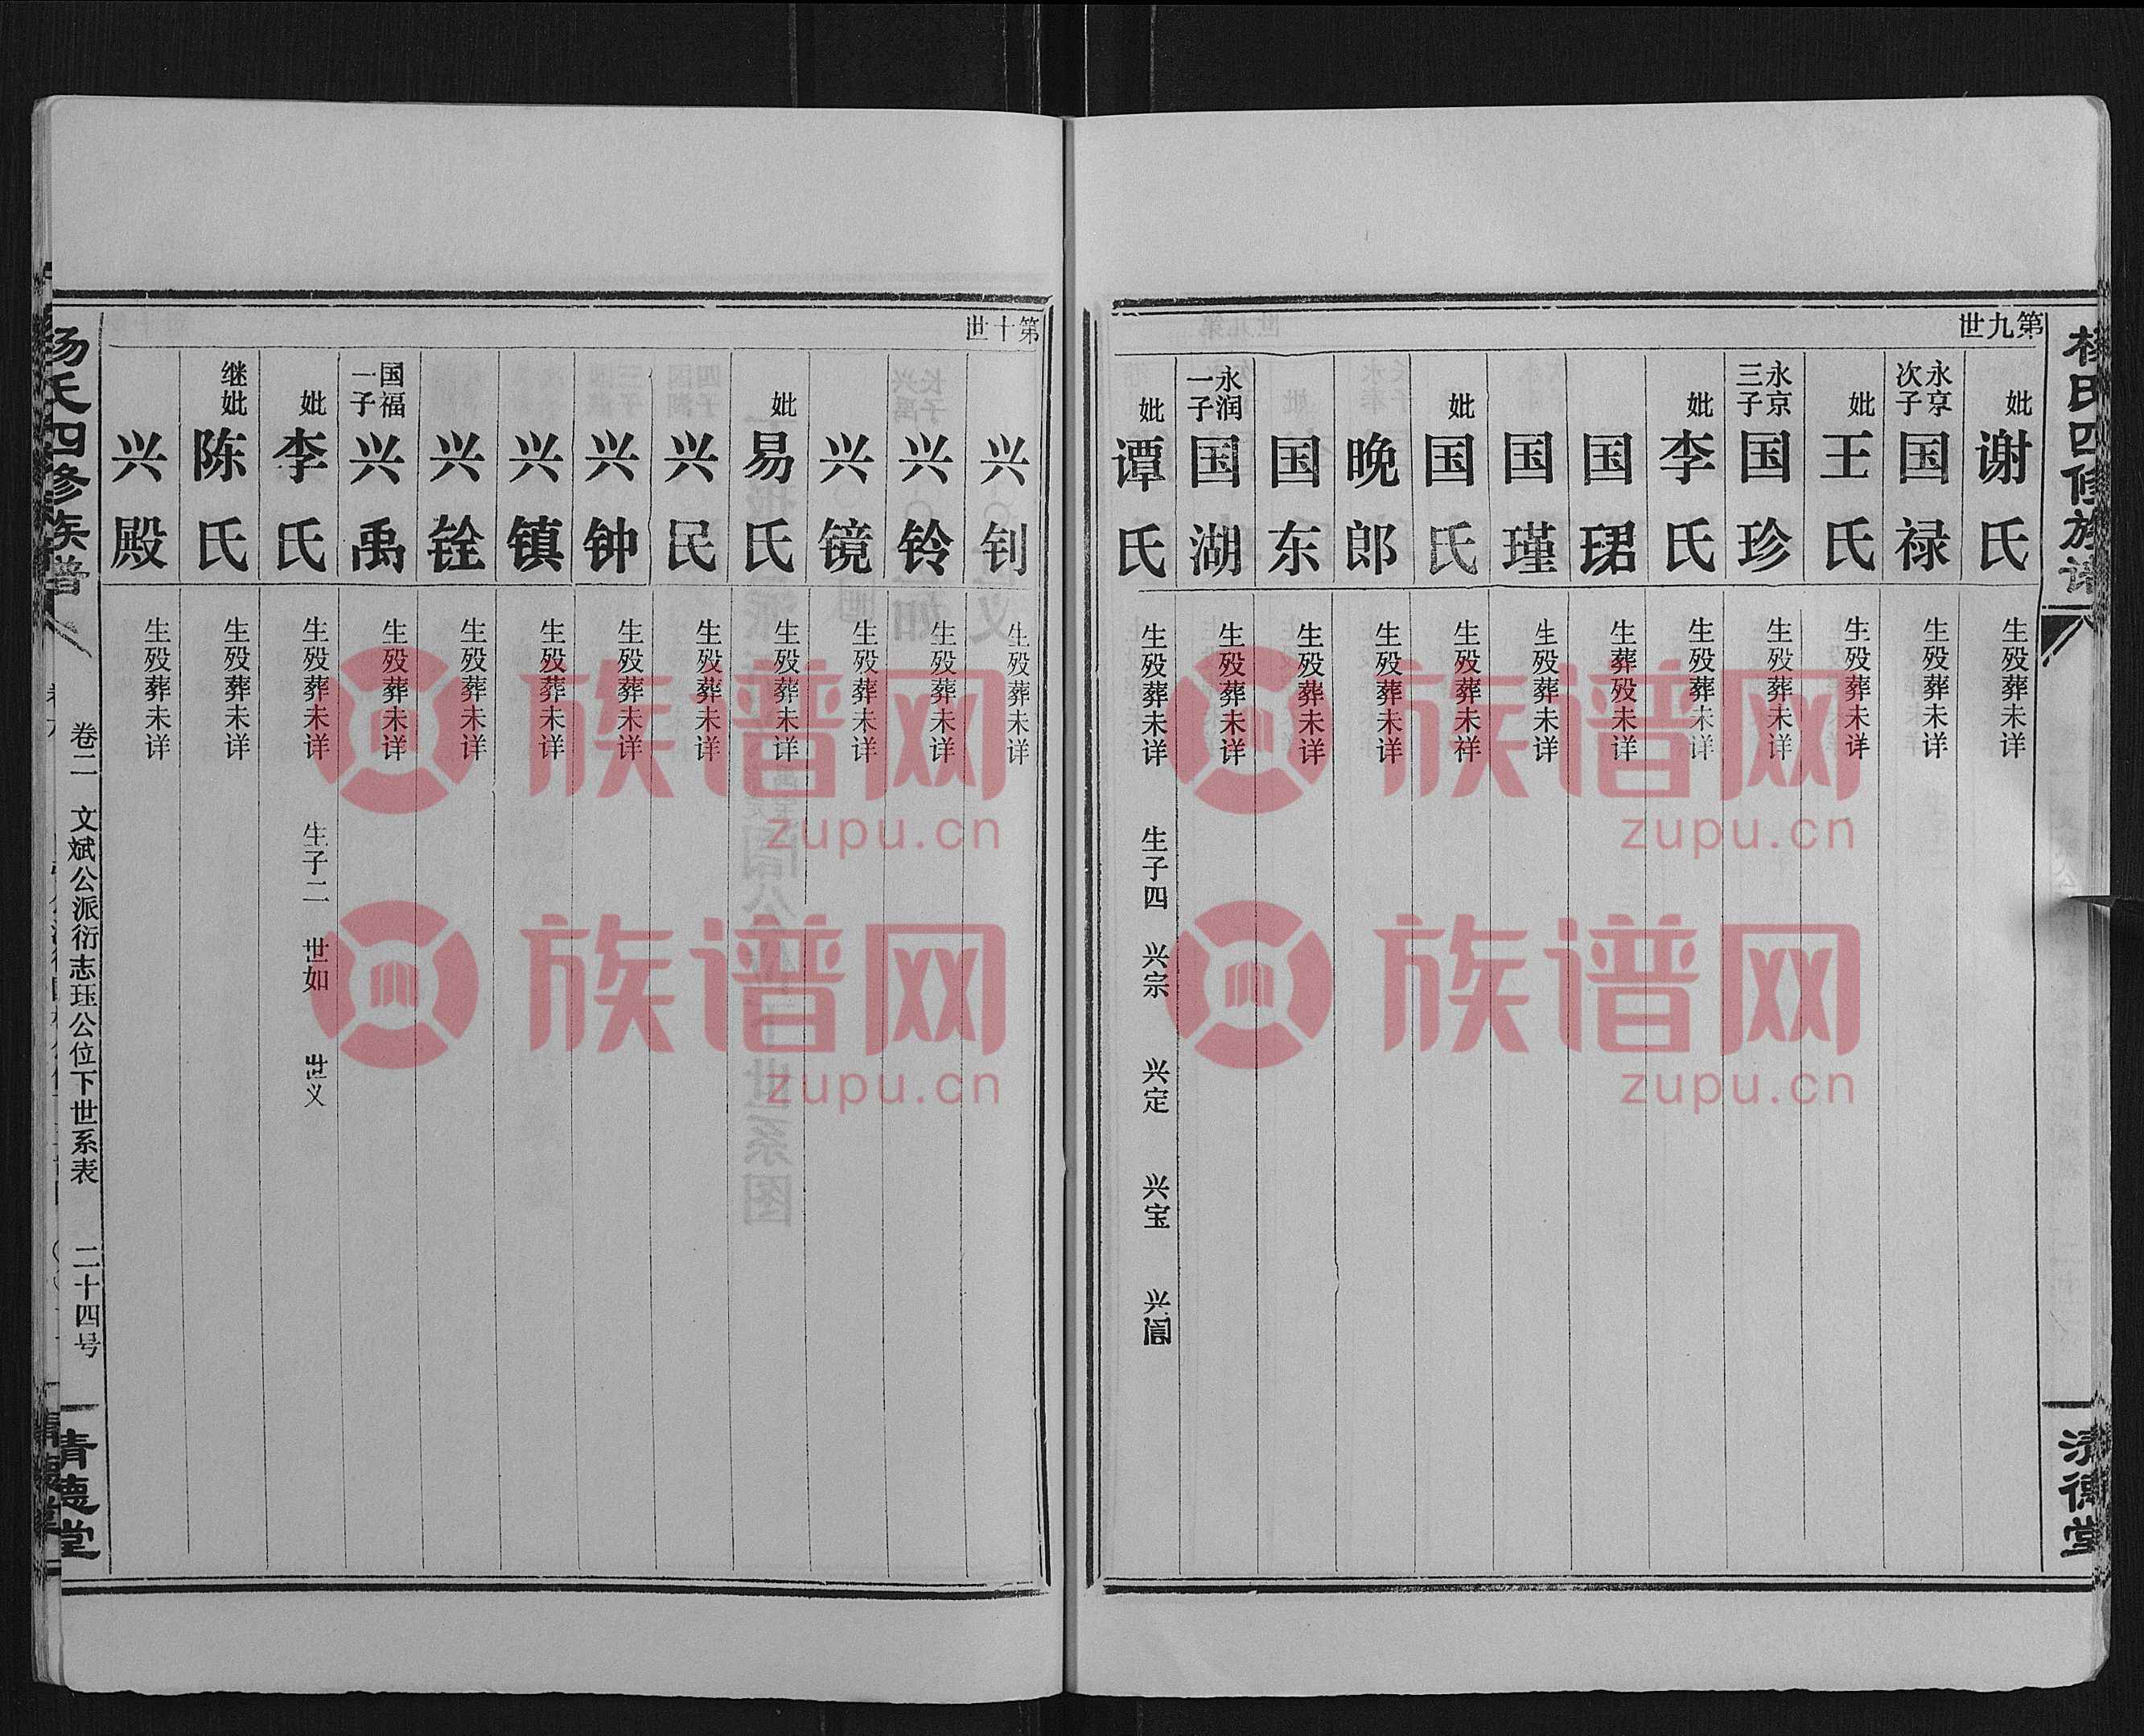 杨氏四修族谱
清德堂
第九世
妣 谢氏 生殁葬未详
永京次子 国禄 生殁葬未详
妣 王氏 生殁葬未详
永京三子 国珍 生殁葬未详
妣 李氏 生殁葬未详
国珺 生葬殁未详
国瑾 生殁葬未详
妣 国氏 生殁葬未祥
晚郎 生殁葬未详
国东 生殁葬未详
永润一子 国湖 生殁葬未详
妣 谭氏 生殁葬未详 生子四 兴宗 兴定 兴宝 兴訚
第十世
兴钊 生殁葬未详
兴铃 生殁葬未详
兴镜 生殁葬未详
妣 易氏 生殁葬未详
兴民 生殁葬未详
兴钟 生殁葬未详
兴镇 生殁葬未详
兴铨 生殁葬未详
国福一子 兴禹 生殁葬未详
妣 李氏 生殁葬未详 生子二 世如 世义
继妣 陈氏 生殁葬未详
兴殿 生殁葬未详
杨氏四修族谱
卷二 文斌公派衍志珏公位下世系表 二十四号
清德堂
族谱网
zupu.cn
族谱网
zupu.cn
族谱网
zupu.cn
族谱网
zupu.cn